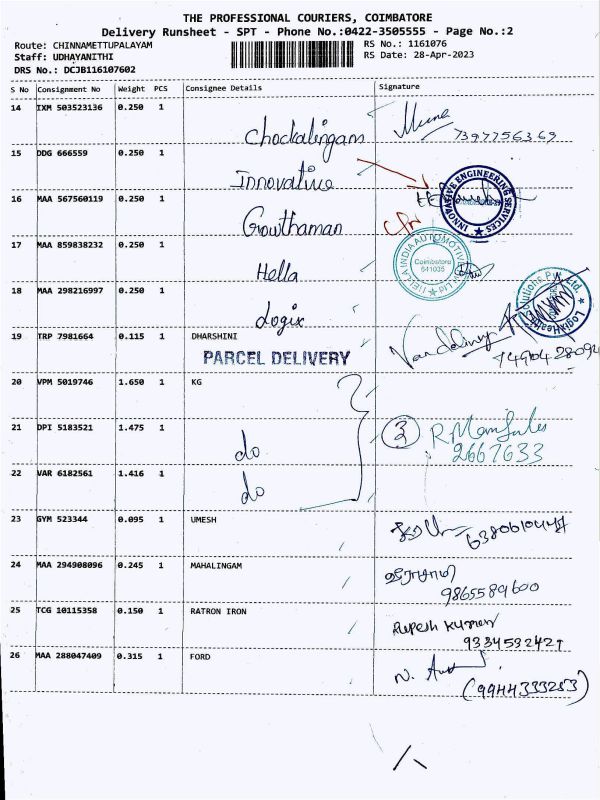 THE PROFESSIONAL COURIERS, COIMBATORE
Delivery Runsheet - SPT - Phone No.:0422-3505555 - Page No.:2
Route: CHINNAMETTUPALAYAM
RS No.: 1161076
Staff: UDHAYANITHI
RS Date: 28-Apr-2023
DRS No.: DCJB116107602
S No Consignment No Weight PCS Consignee Details Signature
14 IXM 503523136 0.250 1
Chockalingam
7397756369
15 DDG 666559 0.250 1
Innovative
INNOVATIVE ENGINEERING SERVICES
16 MAA 567560119 0.250 1
Growthaman
17 MAA 859838232 0.250 1
Hella
HELLA INDIA AUTOMOTIVE Pvt Ltd
Coimbatore
641035
18 MAA 298216997 0.250 1
Logix
LogixHealth Solutions Pvt. Ltd.
19 TRP 7981664 0.115 1 DHARSHINI
PARCEL DELIVERY
20 VPM 5019746 1.650 1 KG
21 DPI 5183521 1.475 1
do
3
2667633
22 VAR 6182561 1.416 1
do
23 GYM 523344 0.095 1 UMESH
24 MAA 294908096 0.245 1 MAHALINGAM
9865589600
25 TCG 10115358 0.150 1 RATRON IRON
Rupesh Kumar
26 MAA 288047409 0.315 1 FORD
(9944333253)